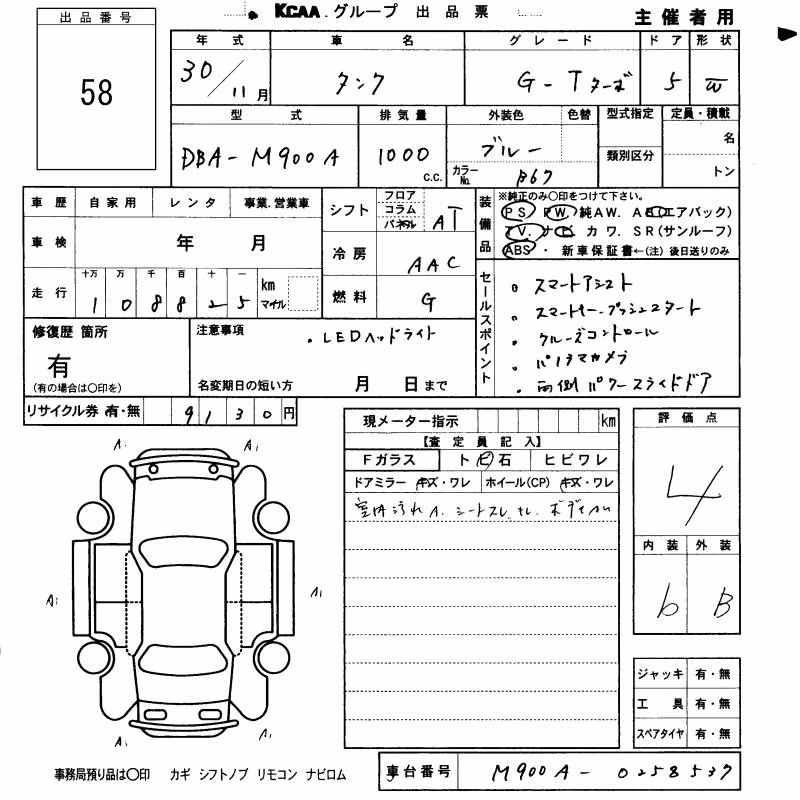 KCAA グループ 出品票
主催者用
出品番号
58
年式 車名 グレード ドア 形状
30/11月 タンク G-Tターボ 5 W
型式 排気量 外装色 色替 型式指定 定員・積載
DBA-M900A 1000c.c. ブルー 名
カラーNo. B67 類別区分 トン
車歴 自家用 レンタ 事業.営業車
シフト フロア コラム パネル AT
装備品 ※純正のみ〇印をつけて下さい。
PS. PW. 純AW. AB(エアバック)
TV. ナビ カワ. SR(サンルーフ)
ABS・新車保証書←(注)後日送りのみ
車検 年 月
冷房 AAC
走行 十万 万 千 百 十 一
108825 km マイル
燃料 G
セールスポイント
・スマートアシスト
・スマートキー.プッシュスタート
・クルーズコントロール
・パノラマカメラ
・両側パワースライドドア
修復歴 箇所
有
(有の場合は〇印を)
注意事項
・LEDヘッドライト
名変期日の短い方 月 日まで
リサイクル券 有・無 9130円
現メーター指示 km
【査定員記入】
Fガラス トビ石 ヒビワレ
ドアミラー キズ・ワレ ホイール(CP) キズ・ワレ
室内汚れA.シートスレ.
評価点
4
内装 外装
b B
Ai Ai
Ai Ai
Ai Ai
ジャッキ 有・無
工具 有・無
スペアタイヤ 有・無
事務局預り品は〇印 カギ シフトノブ リモコン ナビロム
車台番号 M900A-0258537